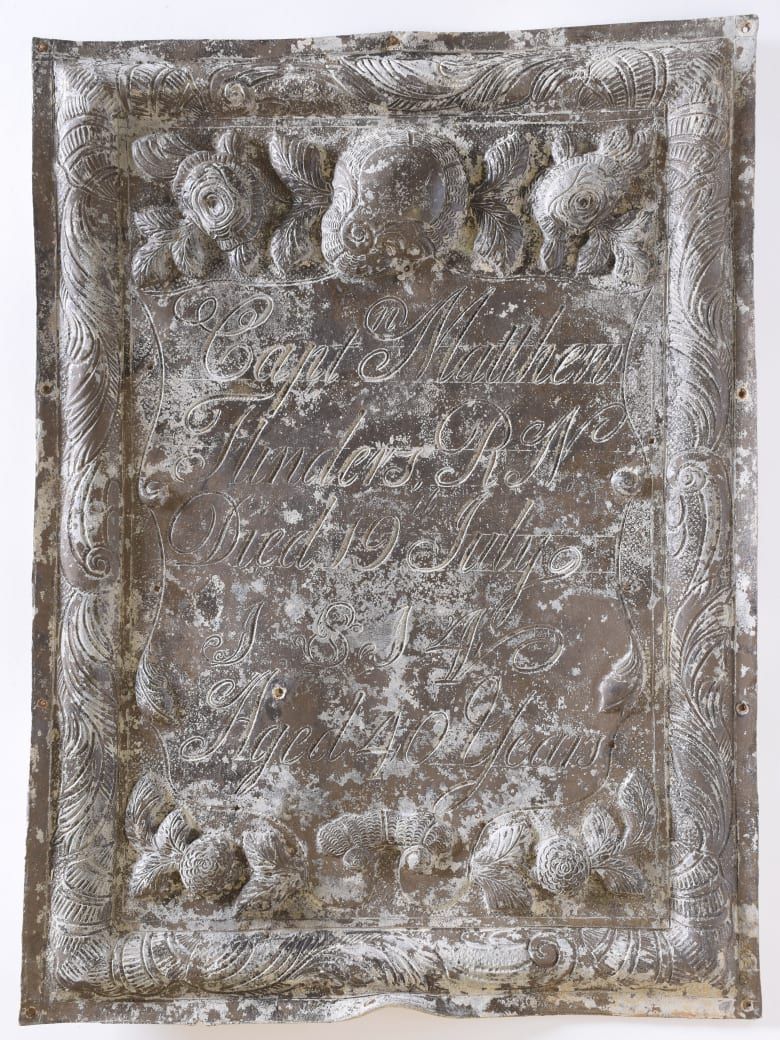 Capt.n Matthew
Flinders, R.N.
Died 19 July
1814
Aged 40 Years